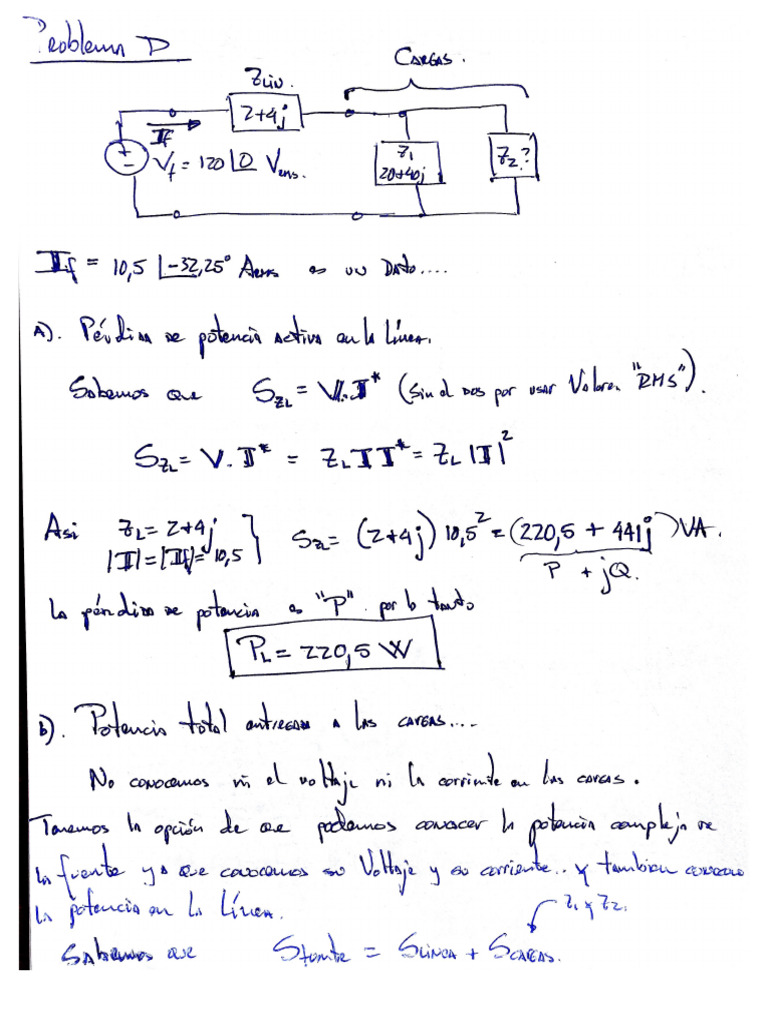 Problema D
CARGAS.
Zlin.
2+4j
If
Vf = 120 ∠0 Vrms.
Z1
20+40j
Z2?
If = 10,5 ∠-32,25° Arms es un Dato....
A). Pérdida de potencia activa en la línea.
Sabemos que SZL = V.I* (sin el dos por usar Valores "RMS").
SZL = V.I* = ZL I I* = ZL |I|²
Asi ZL = 2+4j
|I| = |If| = 10,5
SZL = (2+4j) 10,5² = (220,5 + 441j) VA.
P + jQ.
La pérdida de potencia es "P" por lo tanto
PL = 220,5 W
b). Potencia total entregada a las cargas....
No conocemos ni el voltaje ni la corriente en las cargas.
Tenemos la opción de que podemos conocer la potencia compleja de
la fuente ya que conocemos su Voltaje y su corriente.. y tambien conocemos
la potencia en la Línea.
Z1 y Z2.
Sabemos que Sfuente = SLINEA + SCARGAS.